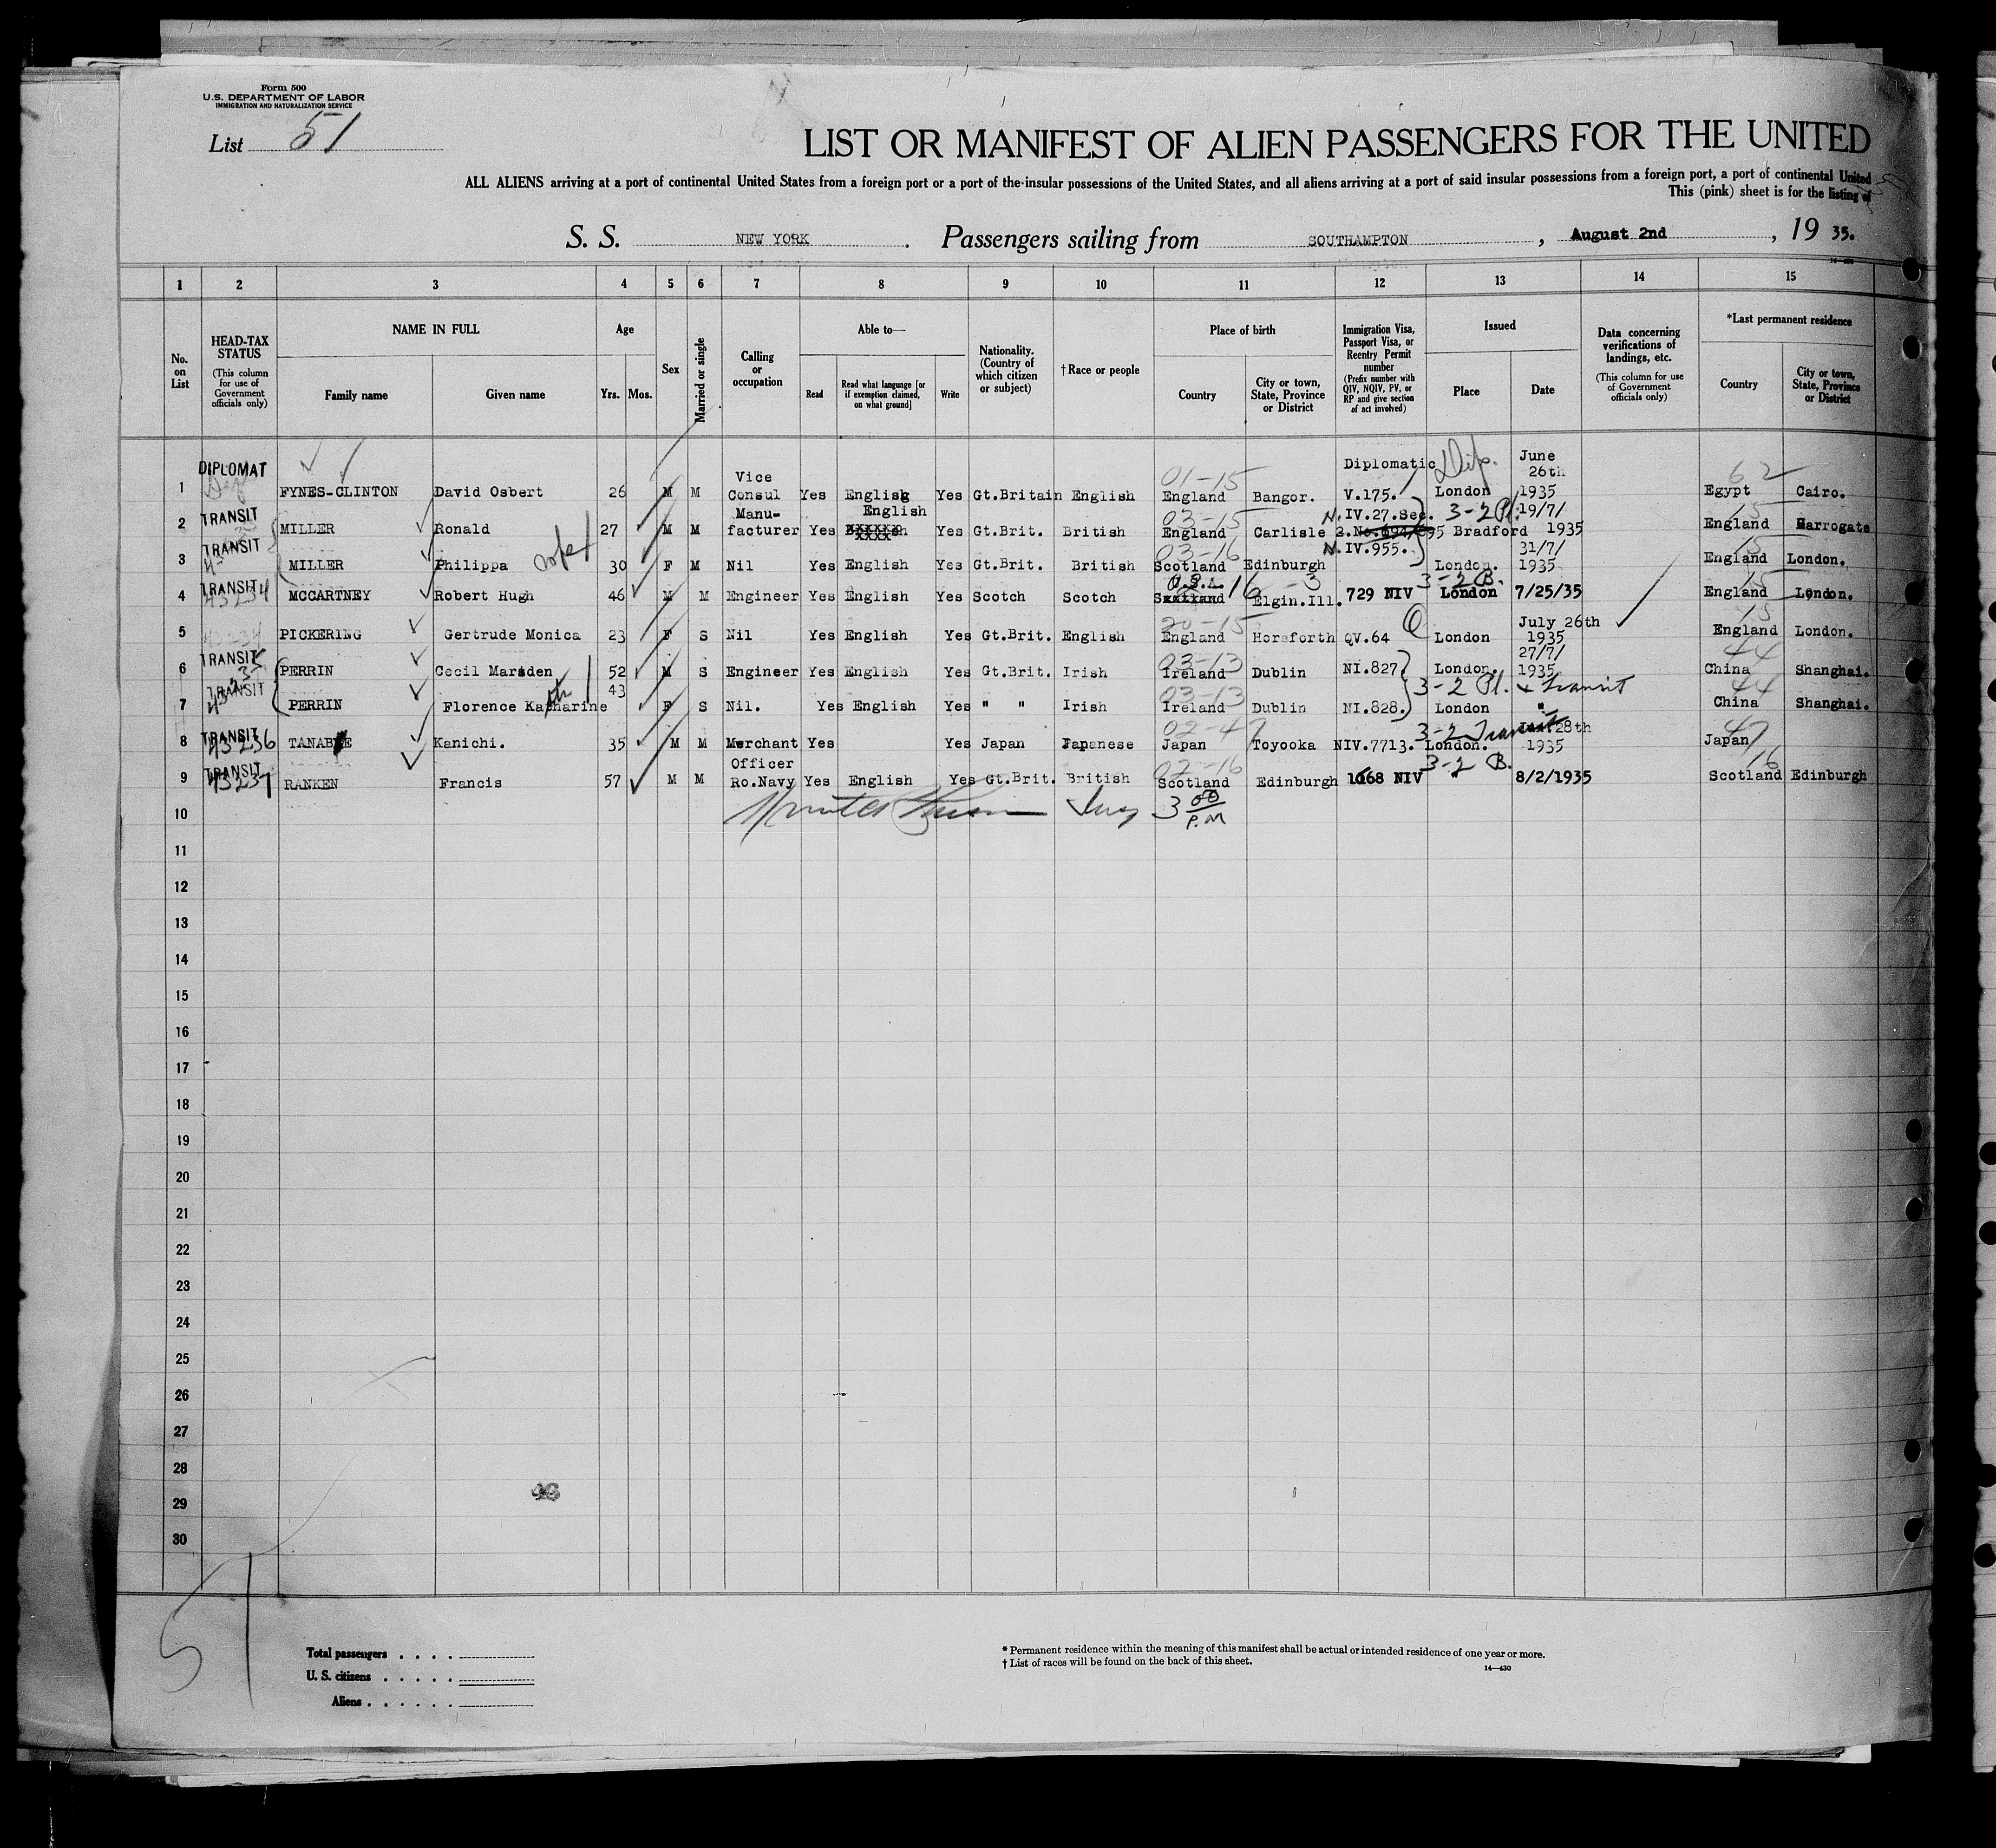 Form 500
U.S. DEPARTMENT OF LABOR
IMMIGRATION AND NATURALIZATION SERVICE
List 51
LIST OR MANIFEST OF ALIEN PASSENGERS FOR THE UNITED
ALL ALIENS arriving at a port of continental United States from a foreign port or a port of the insular possessions of the United States, and all aliens arriving at a port of said insular possessions from a foreign port, a port of continental United
This (pink) sheet is for the listing of
S. S. NEW YORK. Passengers sailing from SOUTHAMPTON, August 2nd, 19 35.
1 2 3 4 5 6 7 8 9 10 11 12 13 14 15
No. on List
HEAD-TAX STATUS (This column for use of Government officials only)
NAME IN FULL
Family name Given name
Age
Yrs. Mos.
Sex
Married or single
Calling or occupation
Able to—
Read Read what language [or if exemption claimed, on what ground] Write
Nationality. (Country of which citizen or subject)
† Race or people
Place of birth
Country City or town, State, Province or District
Immigration Visa, Passport Visa, or Reentry Permit number (Prefix number with QIV, NQIV, PV, or RP and give section of act involved)
Issued
Place Date
Data concerning verifications of landings, etc. (This column for use of Government officials only)
*Last permanent residence
Country City or town, State, Province or District
1 DIPLOMAT FYNES-CLINTON David Osbert 26 M M Vice Consul Yes English Yes Gt.Britain English 01-15 England Bangor. Diplomatic V.175. Dip. London June 26th 1935 62 Egypt Cairo.
2 TRANSIT MILLER Ronald 27 M M Manufacturer Yes English Yes Gt.Brit. British 03-15 England Carlisle N.IV.27.Sec. 3.No.694/695 3-2 Pl. Bradford 19/7/ 1935 15 England Harrogate
3 TRANSIT MILLER Philippa 30 F M Nil Yes English Yes Gt.Brit. British 03-16 Scotland Edinburgh N.IV.955. London. 31/7/ 1935 15 England London.
4 TRANSIT 43234 MCCARTNEY Robert Hugh 46 M M Engineer Yes English Yes Scotch Scotch U.S.A. 16 -3 Scotland Elgin.Ill. 729 NIV 3-2 B. London 7/25/35 15 England London.
5 PICKERING Gertrude Monica 23 F S Nil Yes English Yes Gt.Brit. English 20-15 England Horsforth QV.64 Q London July 26th 1935 15 England London.
6 TRANSIT 43235 PERRIN Cecil Marsden 52 M S Engineer Yes English Yes Gt.Brit. Irish 03-13 Ireland Dublin NI.827 London. 27/7/ 1935 44 China Shanghai.
7 TRANSIT PERRIN Florence Katharine th 43 F S Nil. Yes English Yes " " Irish 03-13 Ireland Dublin NI.828. 3-2 Pl. + Transit London " 44 China Shanghai.
8 TRANSIT 43236 TANABE Kanichi. 35 M M Merchant Yes Yes Japan Japanese 02-47 Japan Toyooka NIV.7713. 3-2 Transit London. 28th 1935 47 Japan
9 TRANSIT 43237 RANKEN Francis 57 M M Officer Ro.Navy Yes English Yes Gt.Brit. British 02-16 Scotland Edinburgh 1068 NIV 3-2 B. " 8/2/1935 16 Scotland Edinburgh
10 3 00 P.M
11
12
13
14
15
16
17
18
19
20
21
22
23
24
25
26
27
28
29
30
51
Total passengers
U. S. citizens
Aliens
* Permanent residence within the meaning of this manifest shall be actual or intended residence of one year or more.
† List of races will be found on the back of this sheet.
14—430